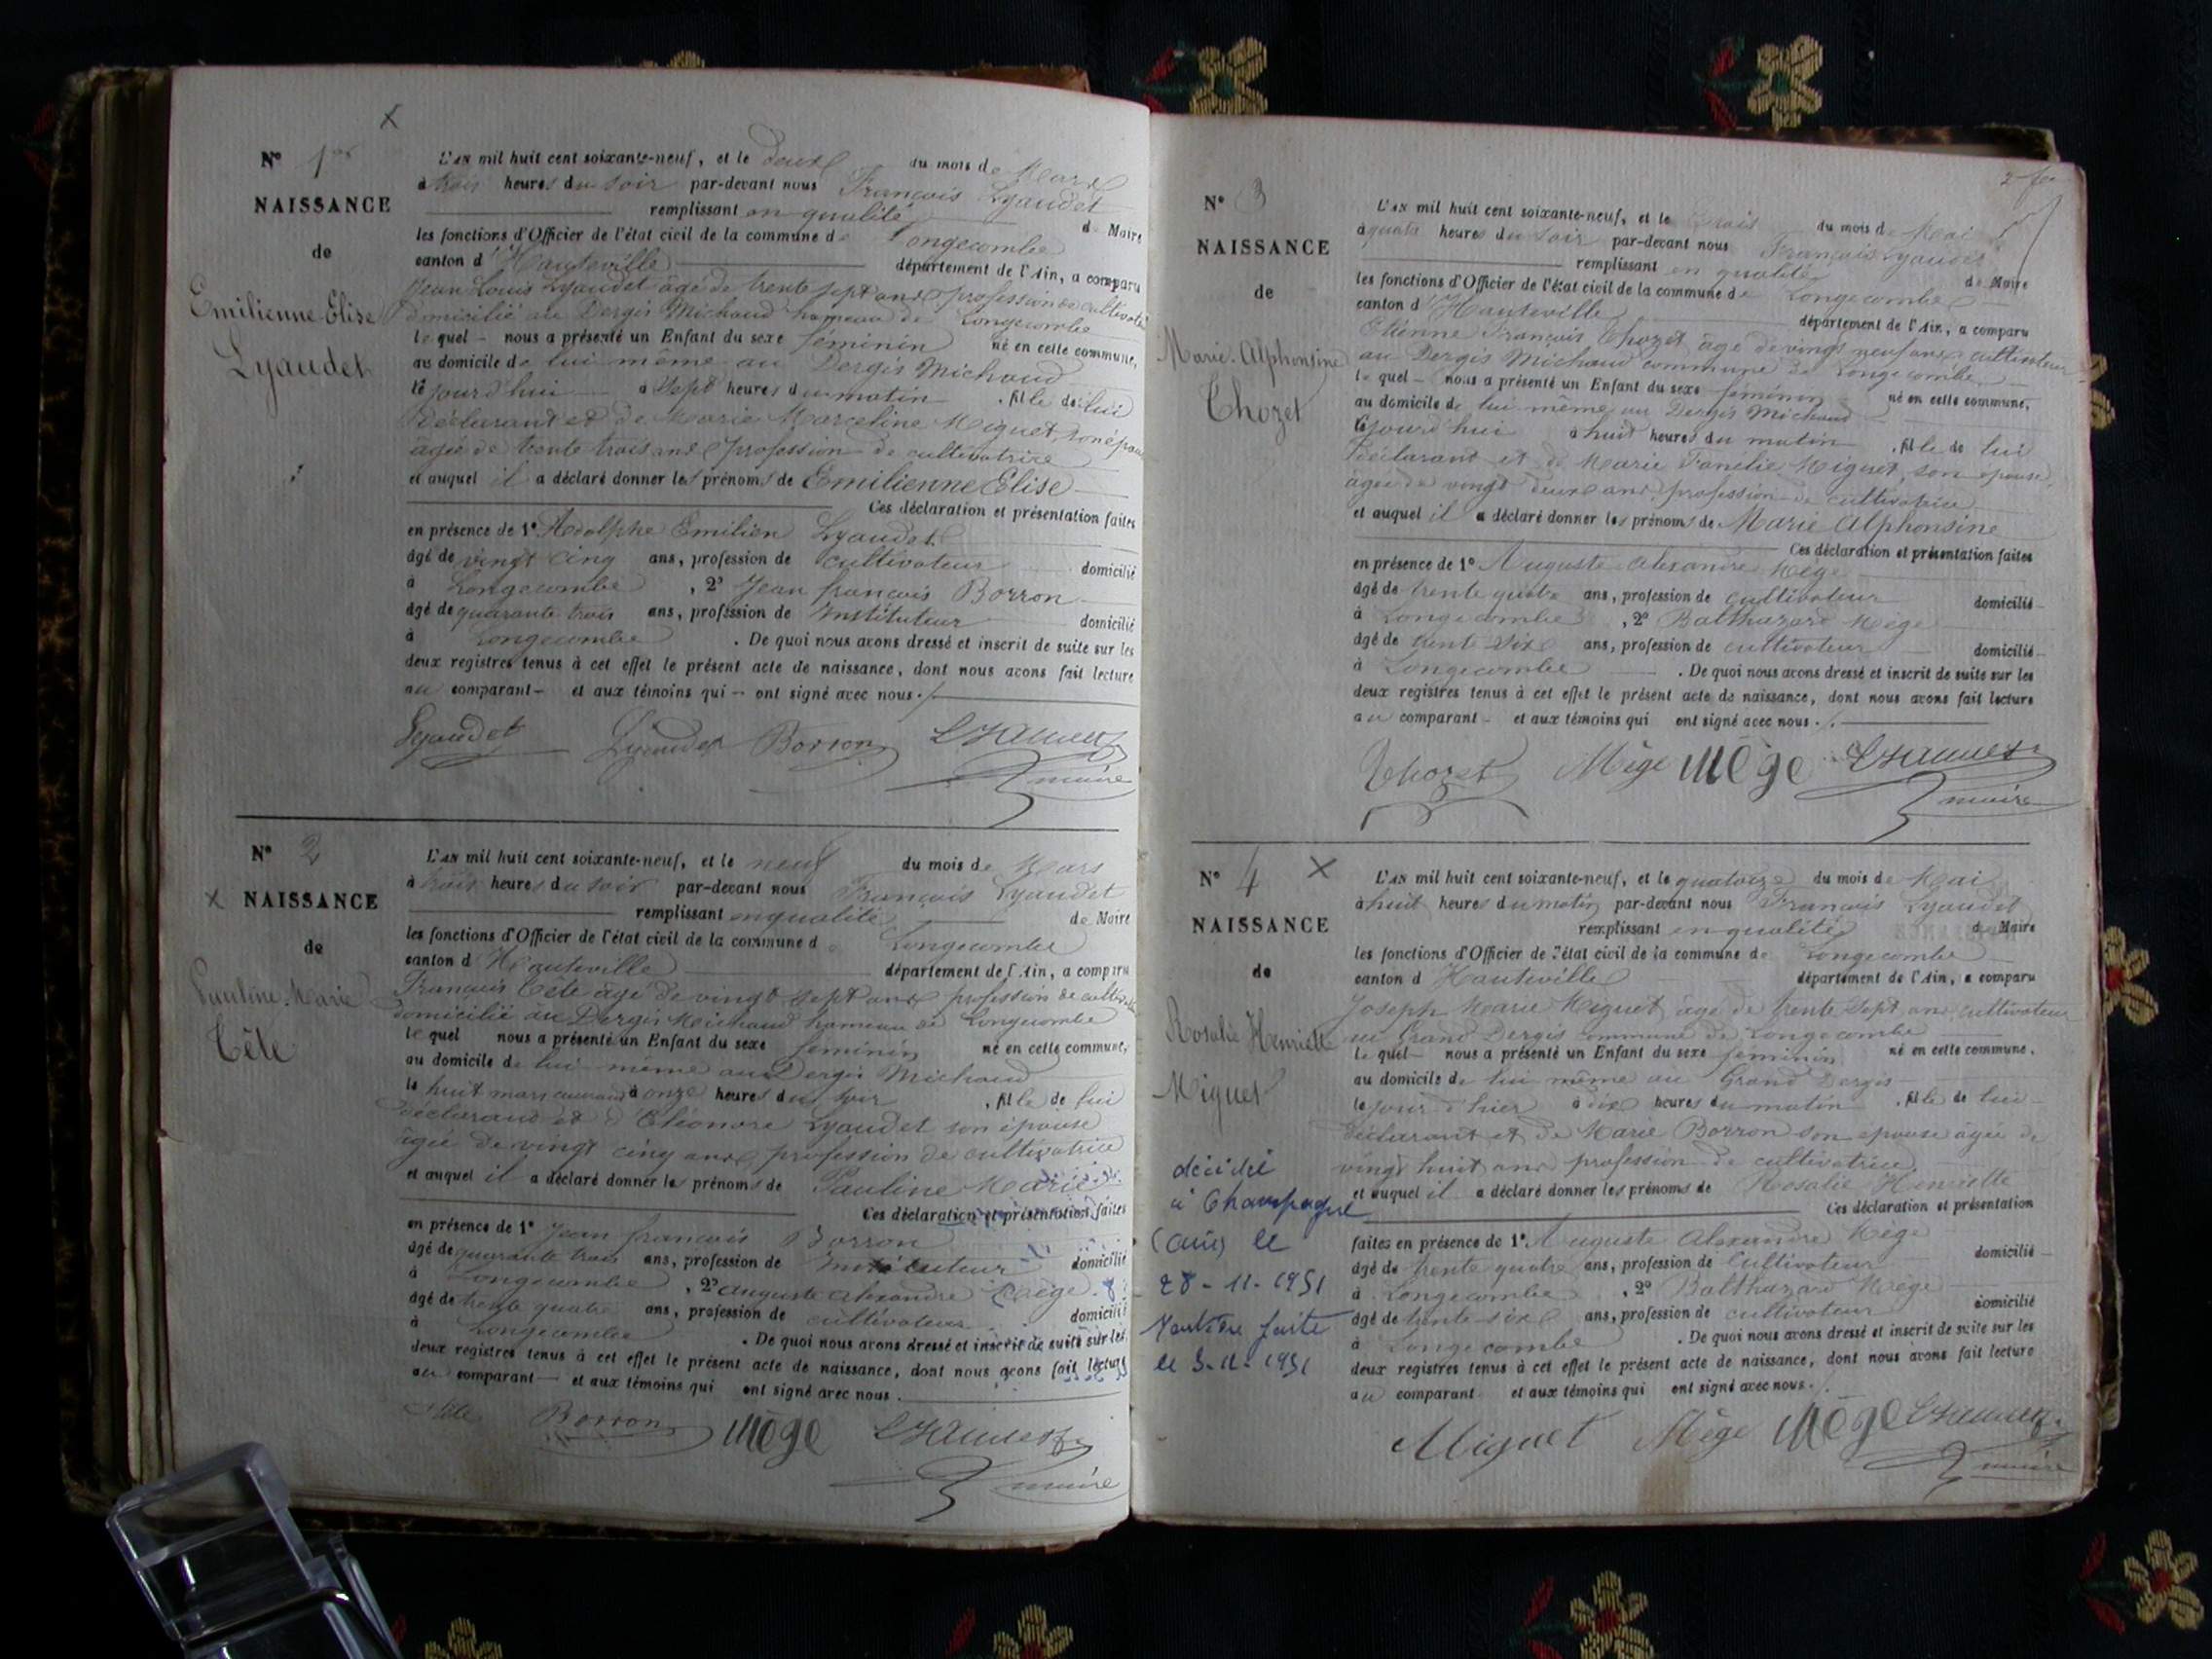 N° 1er
NAISSANCE
de
Emilienne Elise
Lyaudet
L'AN mil huit cent soixante-neuf, et le deux du mois de Mars
à trois heures du soir par-devant nous François Lyaudet
remplissant en qualité de Maire
les fonctions d'Officier de l'état civil de la commune de Longecombe
canton d'Hauteville département de l'Ain, a comparu
Jean Louis Lyaudet âgé de trente sept ans profession de cultivateur
domicilié au Dergis Michaud hameau de Longecombe
lequel nous a présenté un Enfant du sexe féminin né en cette commune,
au domicile de lui même au Dergis Michaud
ce jourd'hui à sept heures du matin, fille de lui
déclarant et de Marie Marceline Miguet, son épouse
âgée de trente trois ans profession de cultivatrice
et auquel il a déclaré donner les prénoms de Emilienne Elise
Ces déclaration et présentation faites
en présence de 1° Adolphe Emilien Lyaudet
âgé de vingt cinq ans, profession de cultivateur domicilié
à Longecombe, 2° Jean françois Borron
âgé de quarante trois ans, profession de Instituteur domicilié
à Longecombe. De quoi nous avons dressé et inscrit de suite sur les
deux registres tenus à cet effet le présent acte de naissance, dont nous avons fait lecture
au comparant et aux témoins qui ont signé avec nous.
Lyaudet Lyaudet Borron Lyaudet
maire
N° 2
NAISSANCE
de
Pauline Marie
Tête
L'AN mil huit cent soixante-neuf, et le neuf du mois de Mars
à trois heures du soir par-devant nous François Lyaudet
remplissant en qualité de Maire
les fonctions d'Officier de l'état civil de la commune de Longecombe
canton d Hauteville département de l'Ain, a comparu
François Tête âgé de vingt sept ans profession de cultivateur
domicilié au Dergis Michaud hameau de Longecombe
lequel nous a présenté un Enfant du sexe féminin né en cette commune,
au domicile de lui même au Dergis Michaud
le huit mars courant à onze heures du soir, fille de lui
déclarant et d'Eléonore Lyaudet son épouse
âgée de vingt cinq ans, profession de cultivatrice
et auquel il a déclaré donner les prénoms de Pauline Marie
Ces déclaration et présentation faites
en présence de 1° Jean françois Borron
âgé de quarante trois ans, profession de Instituteur domicilié
à Longecombe, 2° Auguste Alexandre Mège
âgé de trente quatre ans, profession de cultivateur domicilié
à Longecombe. De quoi nous avons dressé et inscrit de suite sur les
deux registres tenus à cet effet le présent acte de naissance, dont nous avons fait lecture
au comparant et aux témoins qui ont signé avec nous.
Tête Borron Mège Lyaudet
maire
N° 3
NAISSANCE
de
Marie Alphonsine
Thozet
L'AN mil huit cent soixante-neuf, et le trois du mois de Mai
à quatre heures du soir par-devant nous François Lyaudet
remplissant en qualité de Maire
les fonctions d'Officier de l'état civil de la commune de Longecombe
canton d'Hauteville département de l'Ain, a comparu
Etienne François Thozet âgé de vingt neuf ans, cultivateur
au Dergis Michaud commune de Longecombe
lequel nous a présenté un Enfant du sexe féminin né en cette commune,
au domicile de lui même au Dergis Michaud
ce jourd'hui à huit heures du matin, fille de lui
déclarant et de Marie Miguet, son épouse
âgée de vingt deux ans, profession de cultivatrice
et auquel il a déclaré donner les prénoms de Marie Alphonsine
Ces déclaration et présentation faites
en présence de 1° Auguste Alexandre Mège
âgé de trente quatre ans, profession de cultivateur domicilié
à Longecombe, 2° Balthazard Mège
âgé de trente six ans, profession de cultivateur domicilié
à Longecombe. De quoi nous avons dressé et inscrit de suite sur les
deux registres tenus à cet effet le présent acte de naissance, dont nous avons fait lecture
au comparant et aux témoins qui ont signé avec nous.
Thozet Mège Mège Lyaudet
maire
N° 4
NAISSANCE
de
Rosalie Henriette
Miguet
décédé
à Champagne
(ain) le
28-11-1951
faite
le 3-12-1951
L'AN mil huit cent soixante-neuf, et le quatorze du mois de Mai
à huit heures du matin par-devant nous François Lyaudet
remplissant en qualité de Maire
les fonctions d'Officier de l'état civil de la commune de Longecombe
canton d Hauteville département de l'Ain, a comparu
Joseph Marie Miguet, âgé de trente sept ans, cultivateur
au Grand Dergis commune de Longecombe
lequel nous a présenté un Enfant du sexe féminin né en cette commune,
au domicile de lui même au Grand Dergis
le jour d'hier à dix heures du matin, fille de lui
déclarant et de Marie Borron son épouse âgée de
vingt huit ans profession de cultivatrice.
et auquel il a déclaré donner les prénoms de Rosalie Henriette
Ces déclaration et présentation
faites en présence de 1° Auguste Alexandre Mège
âgé de trente quatre ans, profession de cultivateur domicilié
à Longecombe, 2° Balthazard Mège
âgé de trente six ans, profession de cultivateur domicilié
à Longecombe. De quoi nous avons dressé et inscrit de suite sur les
deux registres tenus à cet effet le présent acte de naissance, dont nous avons fait lecture
au comparant et aux témoins qui ont signé avec nous.
Miguet Mège Mège Lyaudet
maire